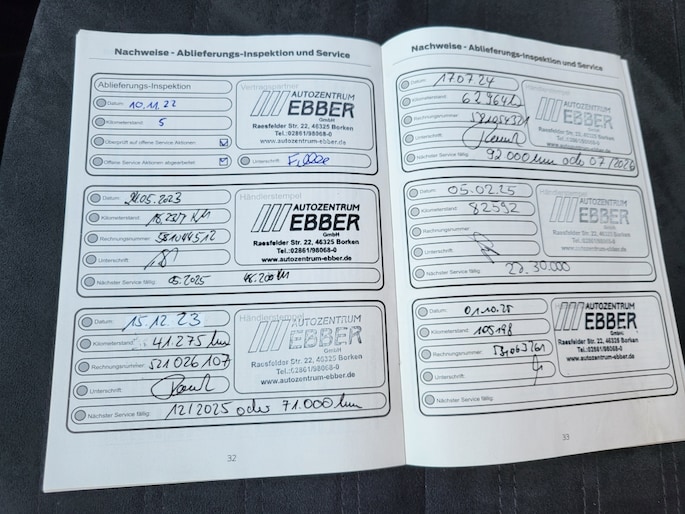 Nachweise - Ablieferungs-Inspektion und Service
Ablieferungs-Inspektion
Datum: 10.11.22
Kilometerstand: 5
Überprüft auf offene Service Aktionen:
Offene Service Aktionen abgearbeitet:
Vertragspartner
AUTOZENTRUM
EBBER
GmbH
Raesfelder Str. 22, 46325 Borken
Tel.:02861/98068-0
www.autozentrum-ebber.de
Unterschrift:
Datum: 05.2023
Kilometerstand:
Rechnungsnummer: 581044512
Unterschrift:
Nächster Service fällig: 05.2025 46.200 km
Händlerstempel
AUTOZENTRUM
EBBER
GmbH
Raesfelder Str. 22, 46325 Borken
Tel.:02861/98068-0
www.autozentrum-ebber.de
Datum: 15.12.23
Kilometerstand: 41.275 km
Rechnungsnummer: 521026107
Unterschrift:
Nächster Service fällig: 12/2025 oder 71.000 km
Händlerstempel
AUTOZENTRUM
EBBER
GmbH
Raesfelder Str. 22, 46325 Borken
Tel.:02861/98068-0
www.autozentrum-ebber.de
32
Nachweise - Ablieferungs-Inspektion und Service
Datum: 170724
Kilometerstand:
Rechnungsnummer:
Unterschrift:
Nächster Service fällig: 92 000 km oder 07/2026
Händlerstempel
AUTOZENTRUM
EBBER
GmbH
Raesfelder Str. 22, 46325 Borken
Tel.:02861/98068-0
www.autozentrum-ebber.de
Datum: 05.02.25
Kilometerstand: 82592
Rechnungsnummer:
Unterschrift:
Nächster Service fällig: 30.000
Händlerstempel
AUTOZENTRUM
EBBER
GmbH
Raesfelder Str. 22, 46325 Borken
Tel.:02861/98068-0
www.autozentrum-ebber.de
Datum: 01.10.25
Kilometerstand: 105198
Rechnungsnummer:
Unterschrift:
Nächster Service fällig:
AUTOZENTRUM
EBBER
GmbH
Raesfelder Str. 22, 46325 Borken
Tel.:02861/98068-0
www.autozentrum-ebber.de
33